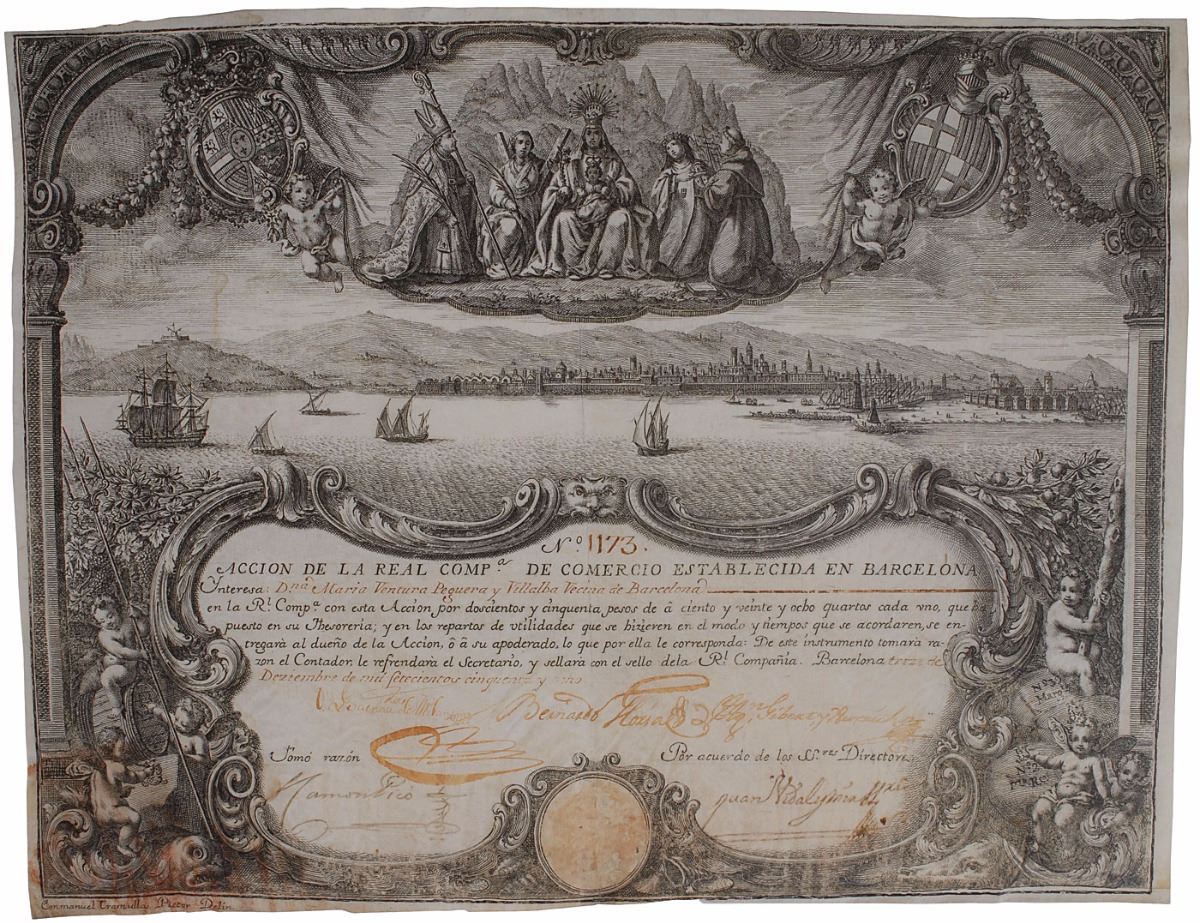 Nº. 1173.
ACCION DE LA REAL COMP.ª DE COMERCIO ESTABLECIDA EN BARCELONA
Ynteresa: Dnª Maria Ventura Peguera y Villalba Vecina de Barcelona
en la Rl. Compª con esta Accion por doscientos y cinquenta pesos de â ciento y veinte y ocho quartos cada vno, que
puesto en su Thesoreria; y en los repartos de vtilidades que se hizieren en el modo y tiempos que se acordaren, se en-
tregarà al dueño de la Accion, ô â su apoderado, lo que por ella le corresponda: De este instrumento tomarà ra-
zon el Contador, le refrendarà el Secretario, y sellarà con el sello dela Rl. Compañia. Barcelona trece de
Deziembre de mil setecientos cinquenta y vno
Bernardo Gloria
Tomó razón
Por acuerdo de los SS.res Directores
Ramon Picó
Juan Vidal y
Conmanuel Tramulla Pictor Delin